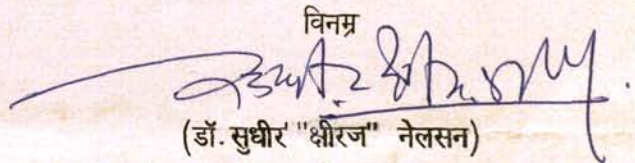 विनम्र
(डॉ. सुधीर "क्षीरज" नेलसन)